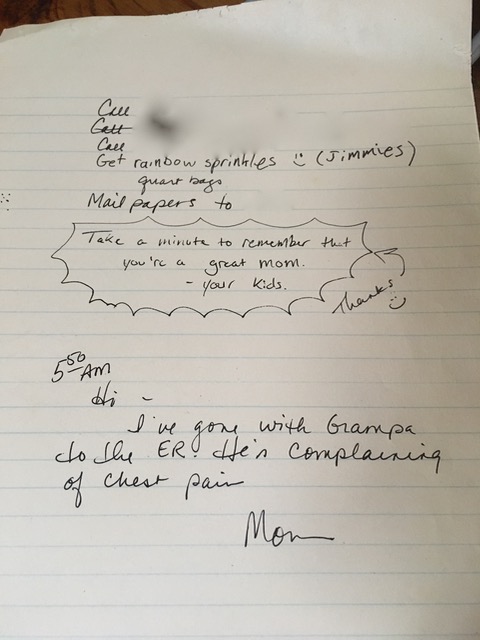 Call
Call
Call
Get rainbow sprinkles :) (Jimmies)
quart bags
Mail papers to
Take a minute to remember that
you're a great mom.
- your kids.
Thanks :)
5:50 AM
Hi -
I've gone with Grampa
to the ER. He's complaining
of chest pain
Mom